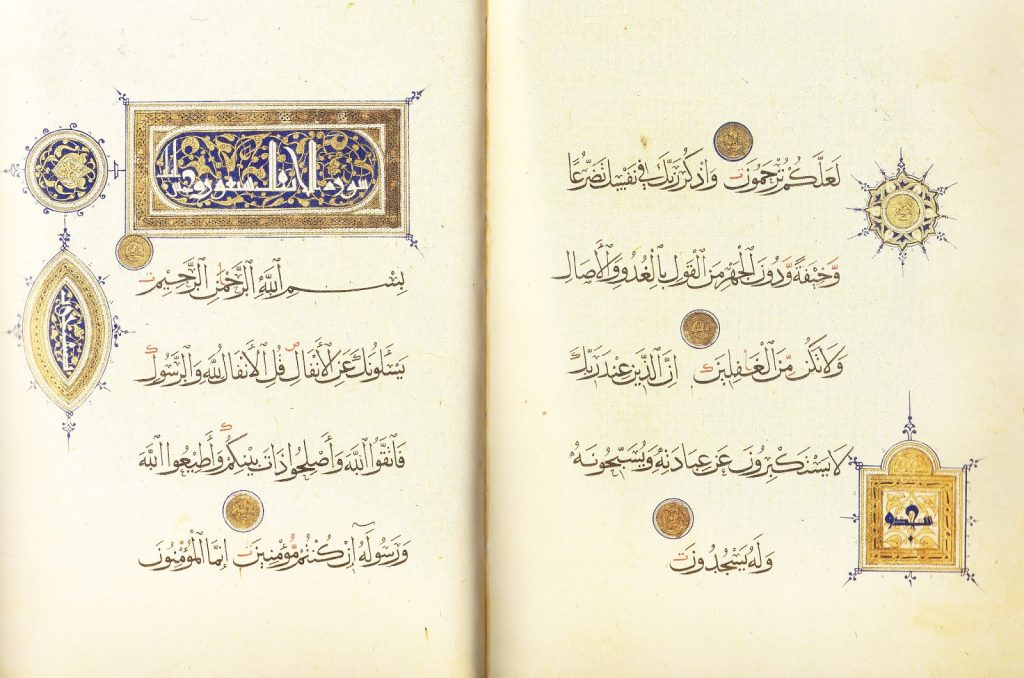 لَعَلَّكُمْ تُرْحَمُونَ وَٱذْكُر رَّبَّكَ فِي نَفْسِكَ تَضَرُّعًا
وَخِيفَةً وَدُونَ ٱلْجَهْرِ مِنَ ٱلْقَوْلِ بِٱلْغُدُوِّ وَٱلْأٓصَالِ
وَلَا تَكُن مِّنَ ٱلْغَٰفِلِينَ إِنَّ ٱلَّذِينَ عِندَ رَبِّكَ
لَا يَسْتَكْبِرُونَ عَنْ عِبَادَتِهِ وَيُسَبِّحُونَهُ
وَلَهُ يَسْجُدُونَ
سورة الانفال
بِسْمِ ٱللَّهِ ٱلرَّحْمَٰنِ ٱلرَّحِيمِ
يَسْـَٔلُونَكَ عَنِ ٱلْأَنْفَالِ قُلِ ٱلْأَنْفَالُ لِلَّهِ وَٱلرَّسُولِ
فَٱتَّقُوا ٱللَّهَ وَأَصْلِحُوا ذَاتَ بَيْنِكُمْ وَأَطِيعُوا ٱللَّهَ
وَرَسُولَهُ إِنْ كُنْتُم مُّؤْمِنِينَ إِنَّمَا ٱلْمُؤْمِنُونَ